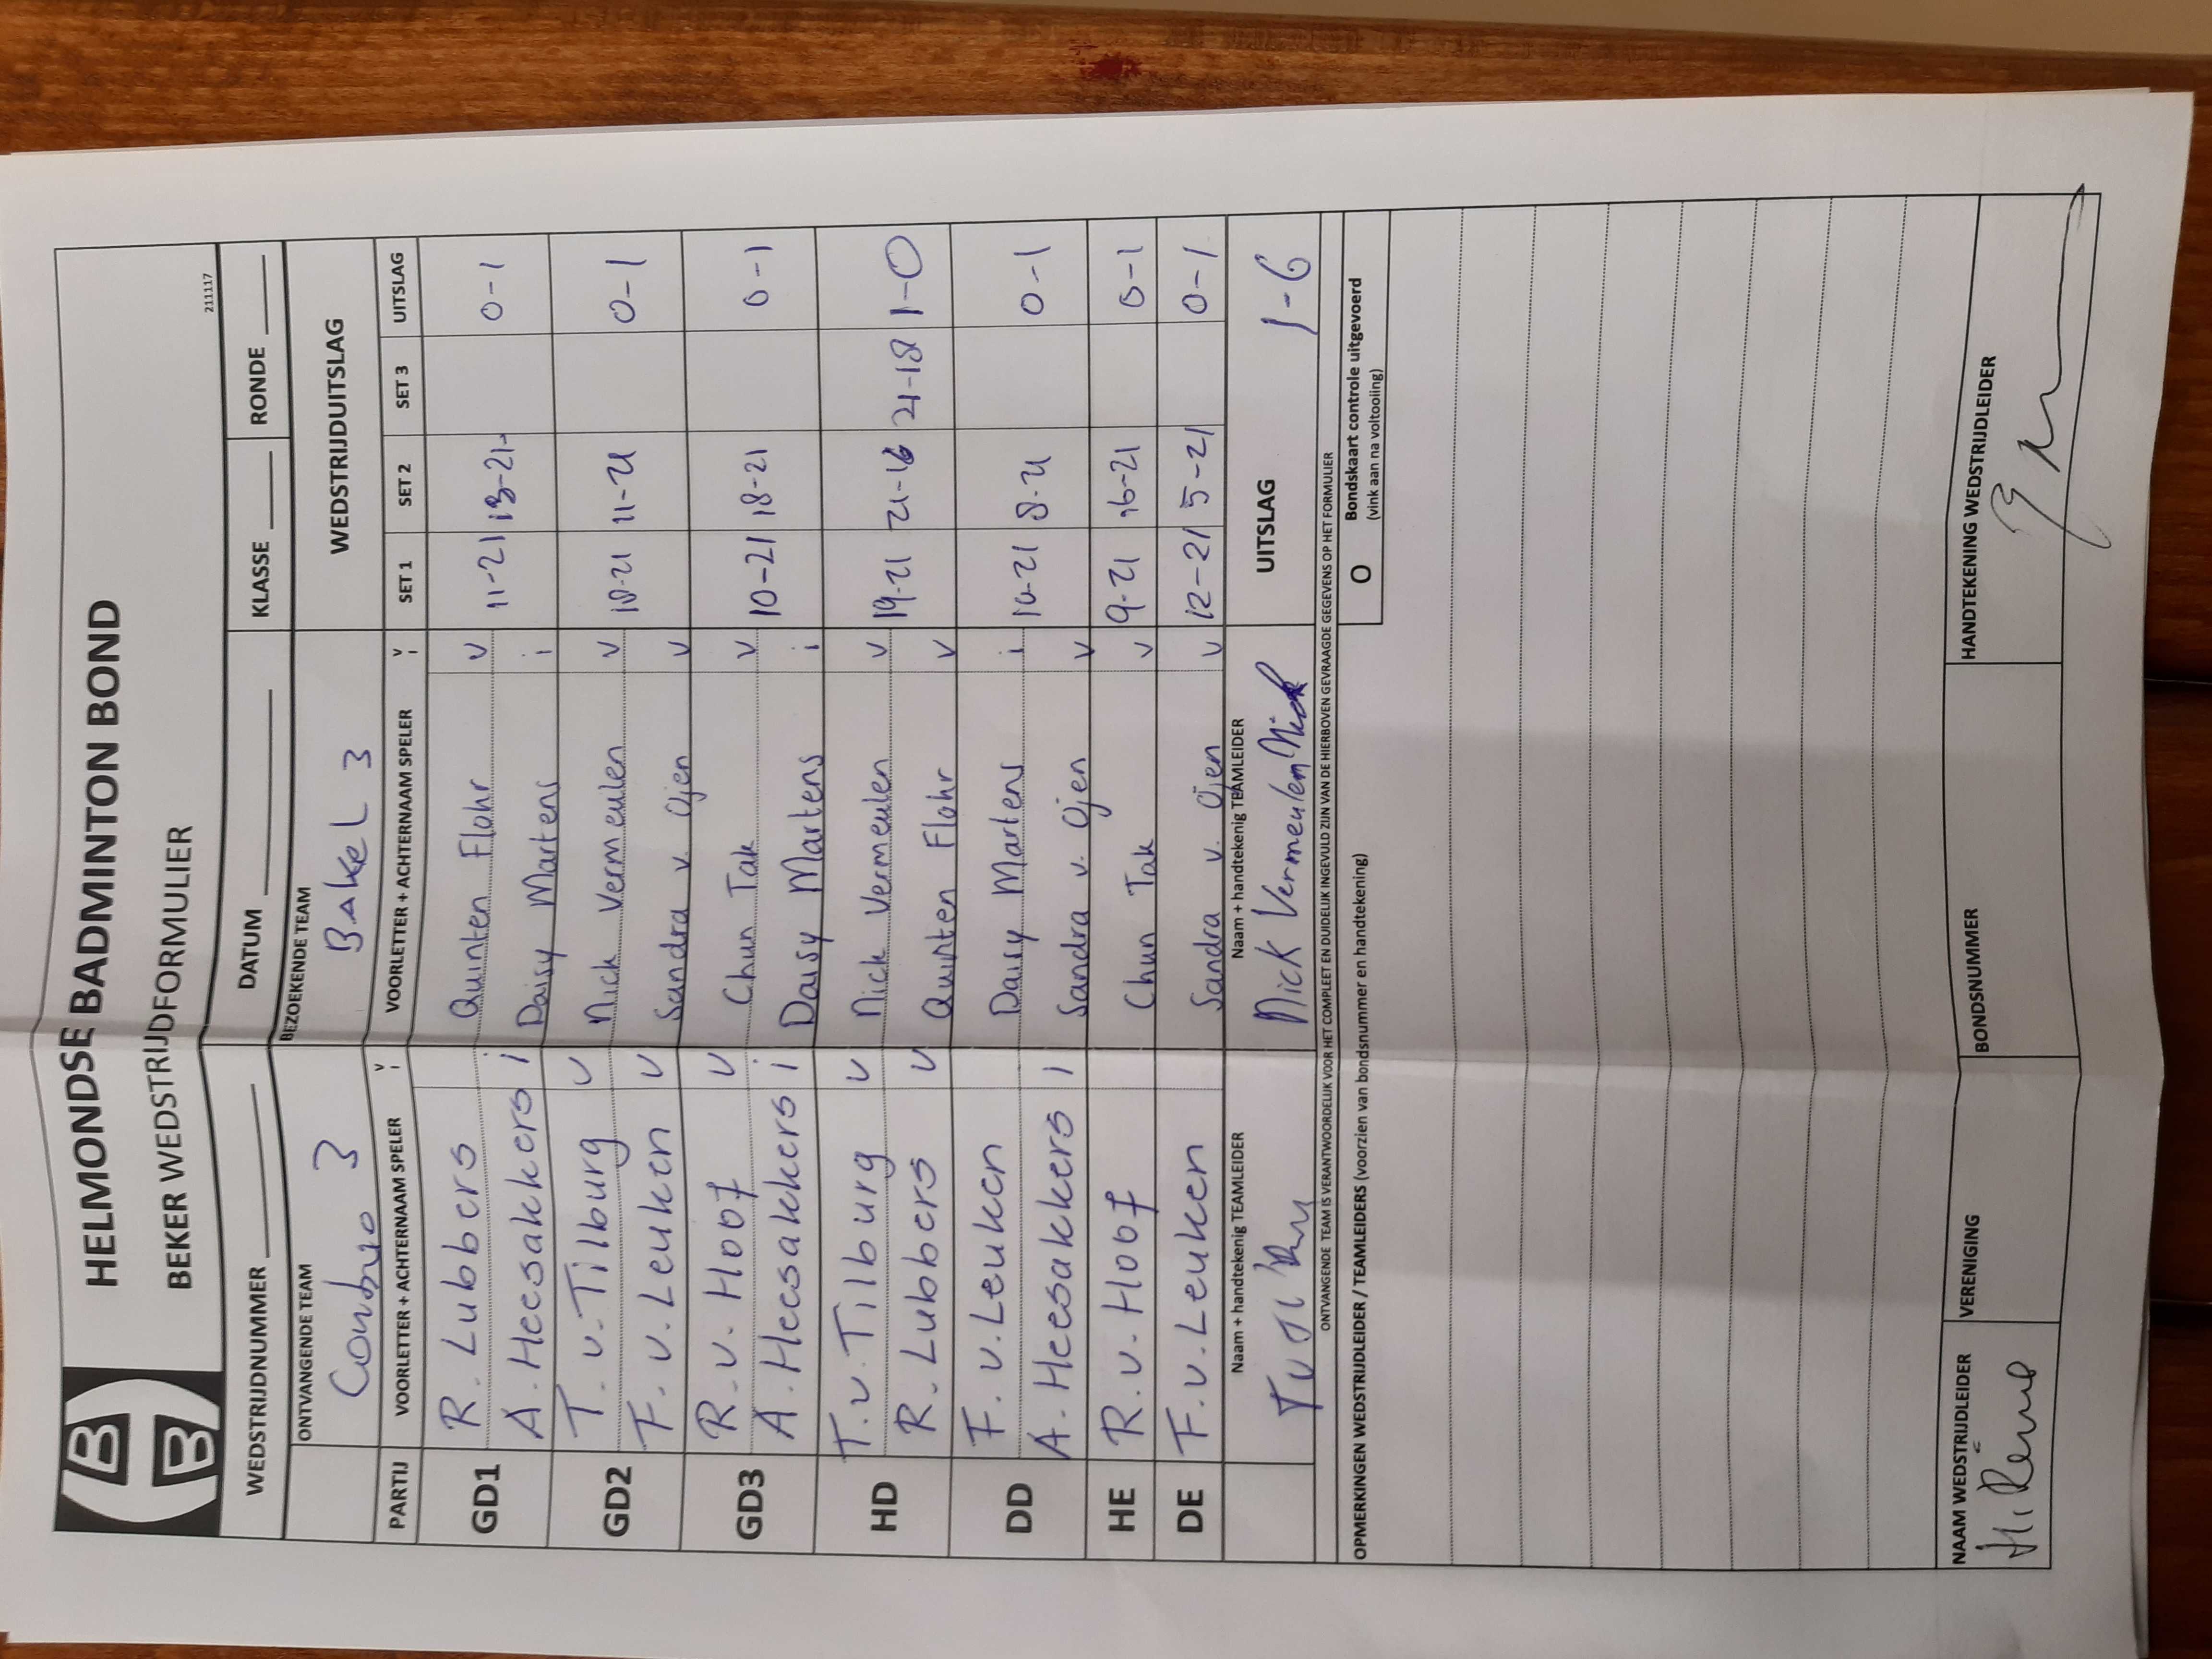 HELMONDSE BADMINTON BOND
BEKER WEDSTRIJDFORMULIER
211117
WEDSTRIJDNUMMER DATUM KLASSE RONDE
ONTVANGENDE TEAM BEZOEKENDE TEAM WEDSTRIJDUITSLAG
3 BAKEL 3
PARTIJ VOORLETTER + ACHTERNAAM SPELER V I VOORLETTER + ACHTERNAAM SPELER V I SET 1 SET 2 SET 3 UITSLAG
GD1 R. Lubbers Quinten Flohr v 11-21 13-21 0-1
A. Heesakkers i Daisy Martens i
GD2 T. v. Tilburg v Nick Vermeulen v 18-21 11-21 0-1
F. v. Leuken v Sandra v. Ojen v
GD3 R. v. Hoof v Chun Tak v 10-21 18-21 0-1
A. Heesakkers i Daisy Martens i
HD T. v. Tilburg v Nick Vermeulen v 19-21 21-16 21-18 1-0
R. Lubbers v Quinten Flohr v
DD F. v. Leuken Daisy Martens i 8-21 0-1
A. Heesakkers i Sandra v. Ojen v
HE R. v. Hoof Chun Tak v 9-21 16-21 0-1
DE F. v. Leuken Sandra v. Ojen v 12-21 5-21 0-1
Naam + handtekenig TEAMLEIDER Naam + handtekenig TEAMLEIDER UITSLAG 1-6
Nick Vermeulen Nick
ONTVANGENDE TEAM IS VERANTWOORDELIJK VOOR HET COMPLEET EN DUIDELIJK INGEVULD ZIJN VAN DE HIERBOVEN GEVRAAGDE GEGEVENS OP HET FORMULIER
OPMERKINGEN WEDSTRIJDLEIDER / TEAMLEIDERS (voorzien van bondsnummer en handtekening) O Bondskaart controle uitgevoerd
(vink aan na voltooling)
NAAM WEDSTRIJDLEIDER VERENIGING BONDSNUMMER HANDTEKENING WEDSTRIJDLEIDER